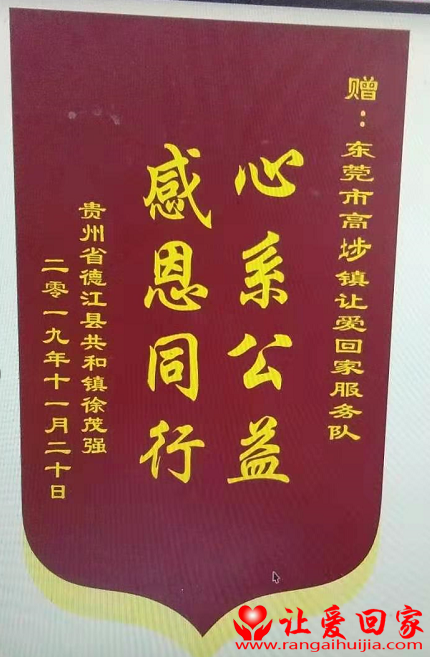 赠：东莞市高埗镇让爱回家服务队
心系公益
感恩同行
贵州省德江县共和镇徐茂强
二零一九年十一月二十日
让爱回家
www.rangaihuijia.com